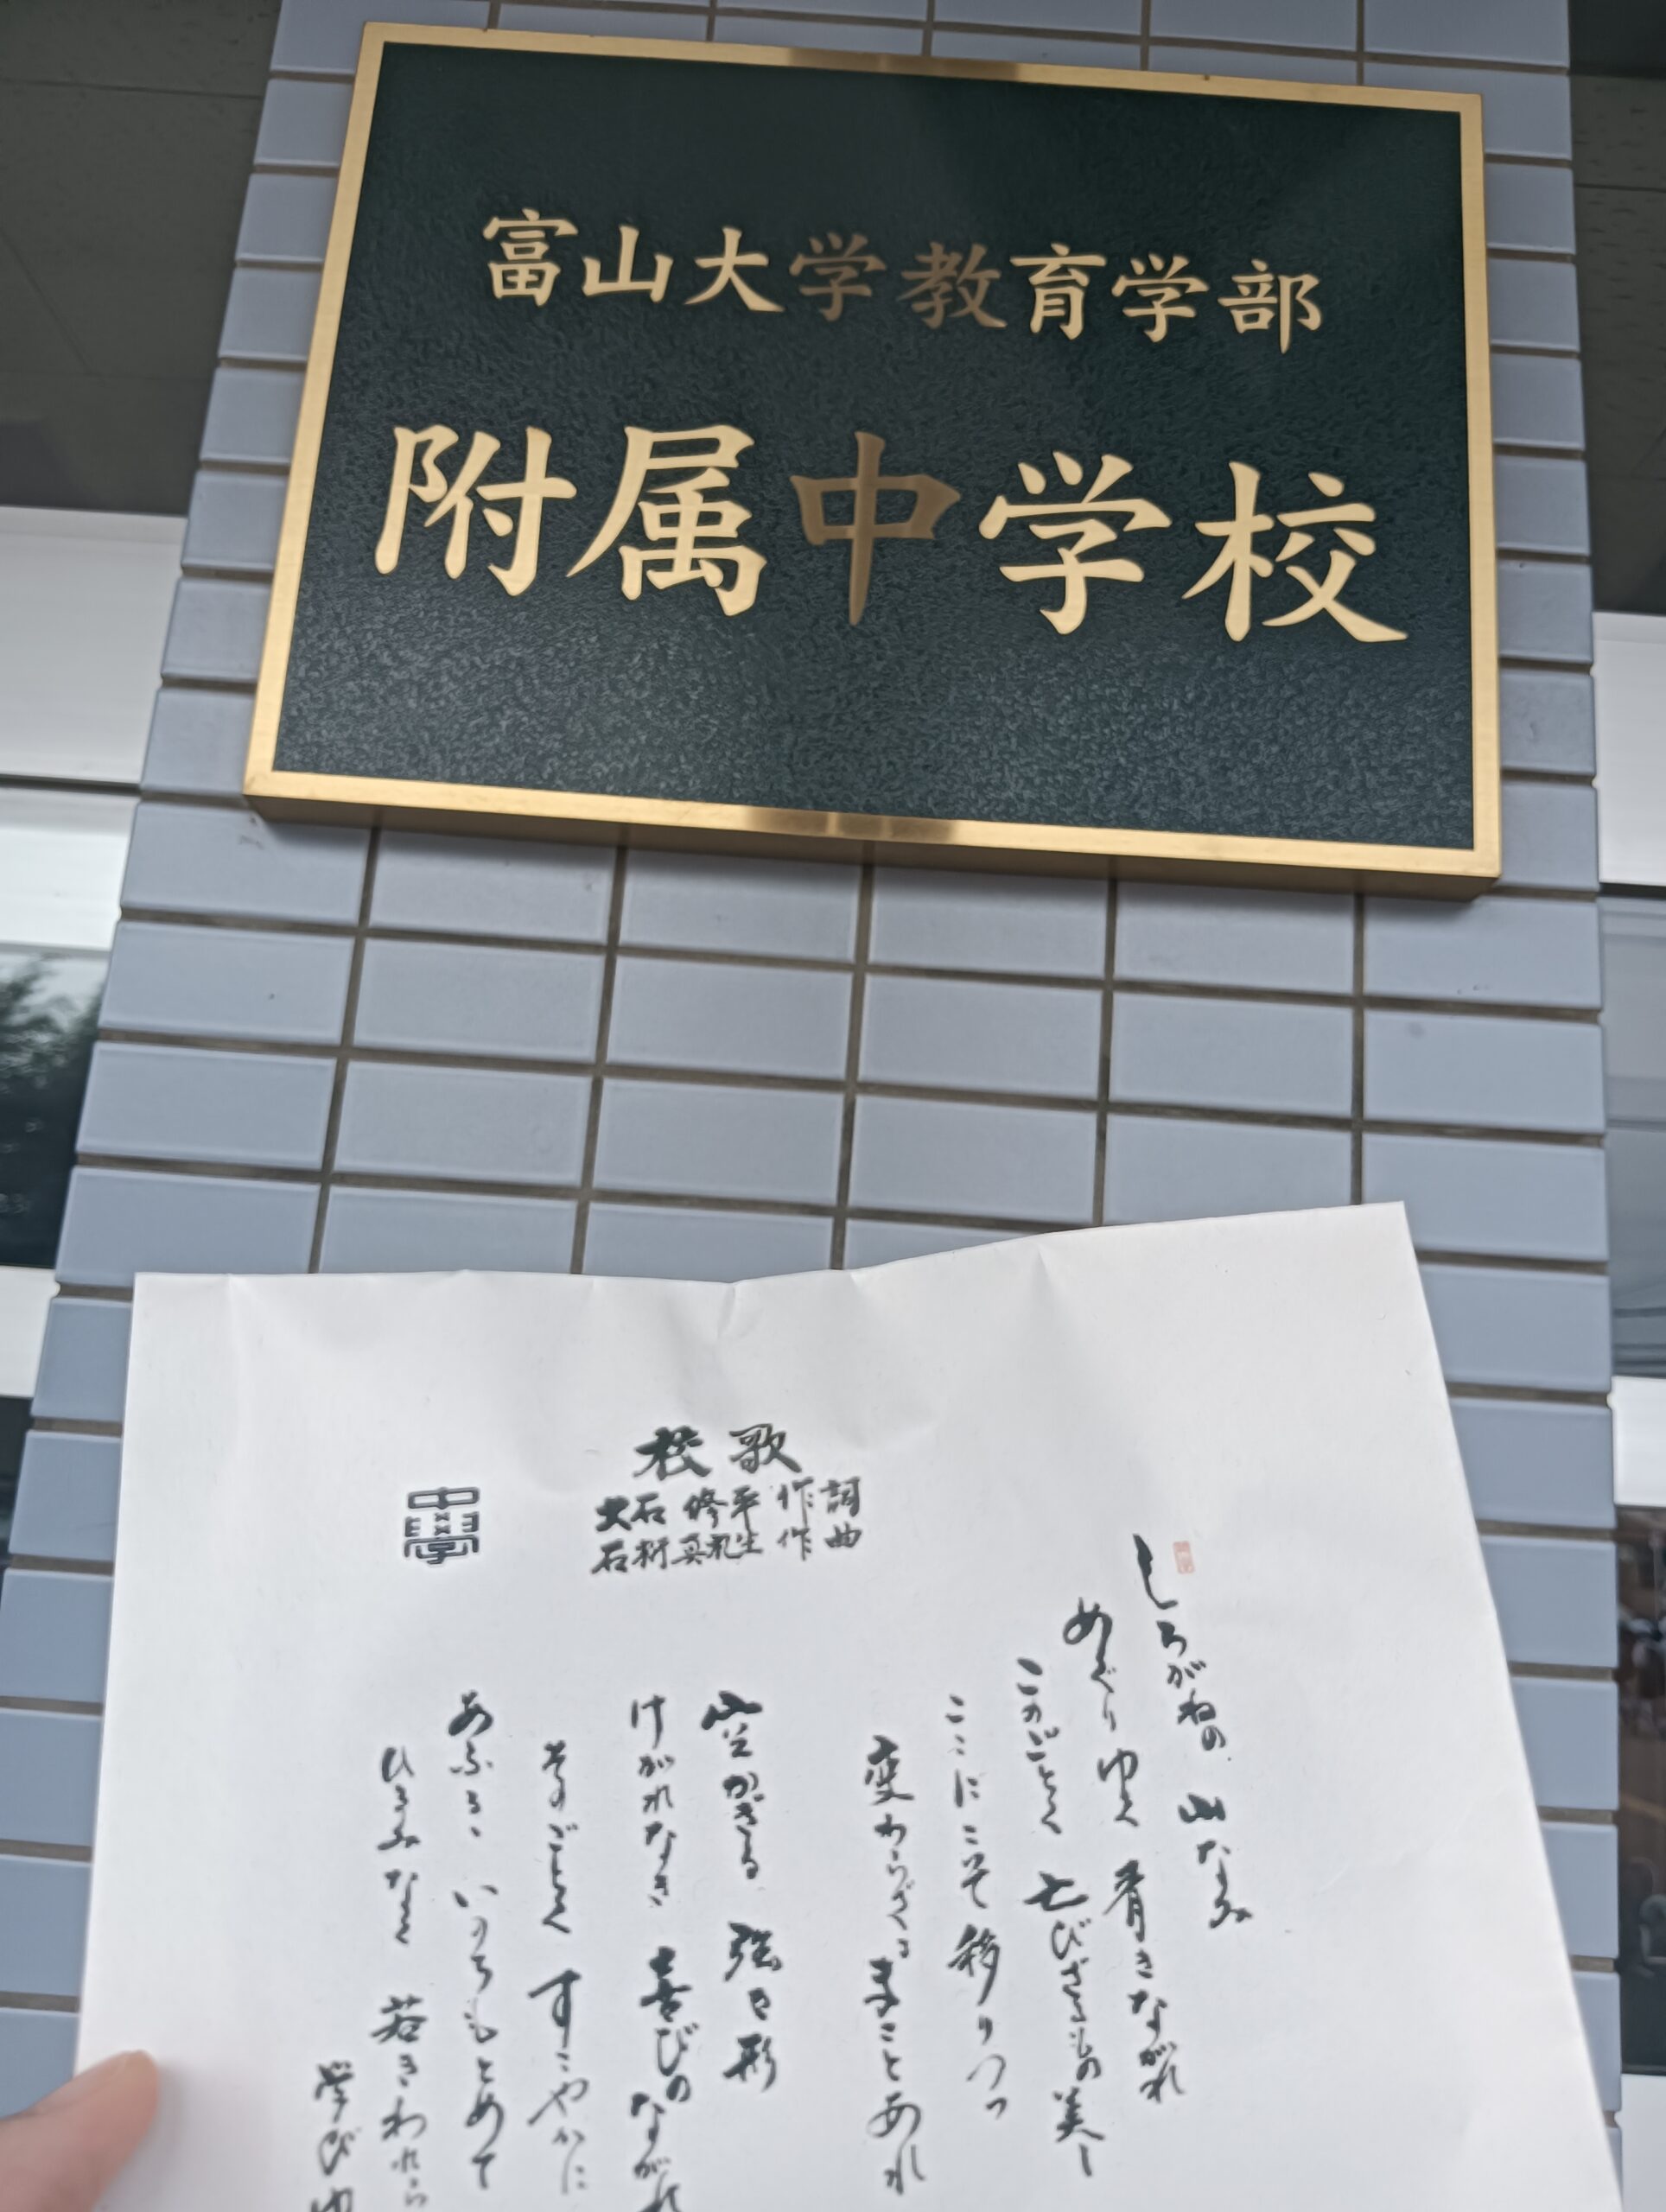 富山大学教育学部
附属中学校
校歌
大石修平 作詞
石桁真礼生 作曲
中学
しろがねの 山なみ
めぐりゆく 青きながれ
このごとく 亡びざるもの美し
ここにこそ 移りつつ
変わらざる まことあれ
空かぎる 強き形
けがれなき 喜びのながれ
そのごとく すこやかに
あふるゝ いのちもとめて
ひるみなく 若きわれら
学びゆ